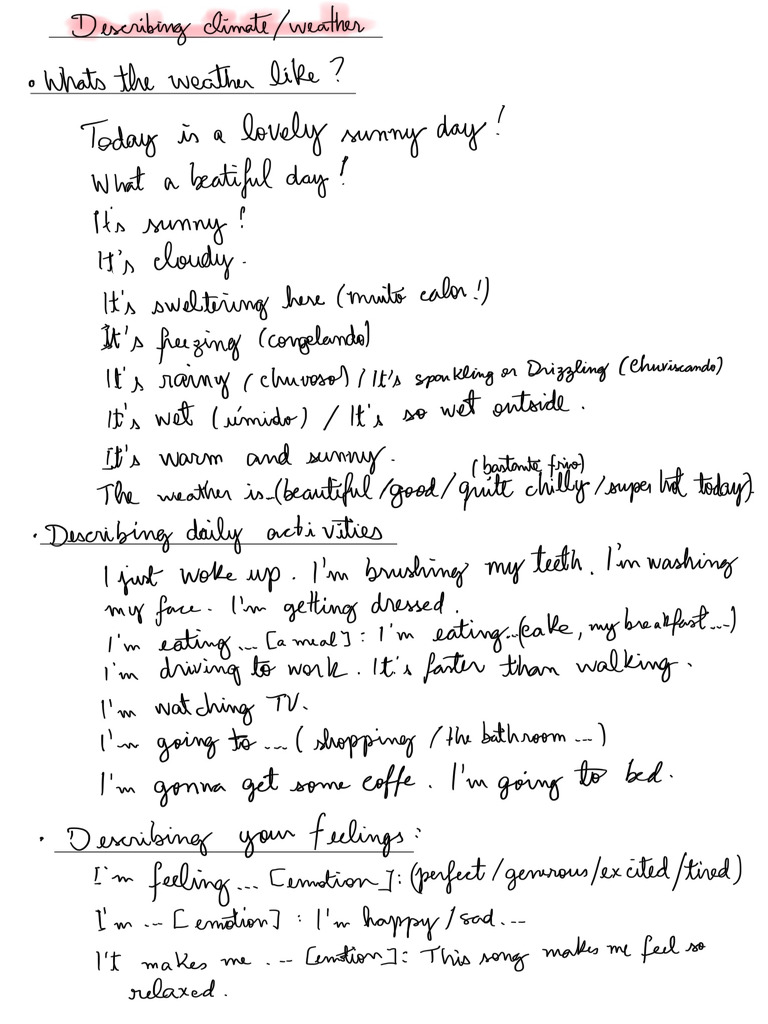 Describing climate/weather
• Whats the weather like?
Today is a lovely sunny day!
What a beatiful day!
It's sunny!
It's cloudy.
It's sweltering here (muito calor!)
It's freezing (congelando)
It's rainy (chuvoso) / It's sparkling or Drizzling (Chuviscando)
It's wet (úmido) / It's so wet outside.
It's warm and sunny.
(bastante frio)
The weather is (beautiful/good/quite chilly/super hot today).
• Describing daily activities
I just woke up. I'm brushing my teeth. I'm washing
my face. I'm getting dressed.
I'm eating... [a meal]: I'm eating...(cake, my breakfast...)
I'm driving to work. It's faster than walking.
I'm watching TV.
I'm going to ... (shopping / the bathroom ...)
I'm gonna get some coffe. I'm going to bed.
• Describing your feelings:
I'm feeling... [emotion]: (perfect/generous/excited/tired)
I'm ... [emotion]: I'm happy/sad...
I't makes me ... [emotion]: This song makes me feel so
relaxed.